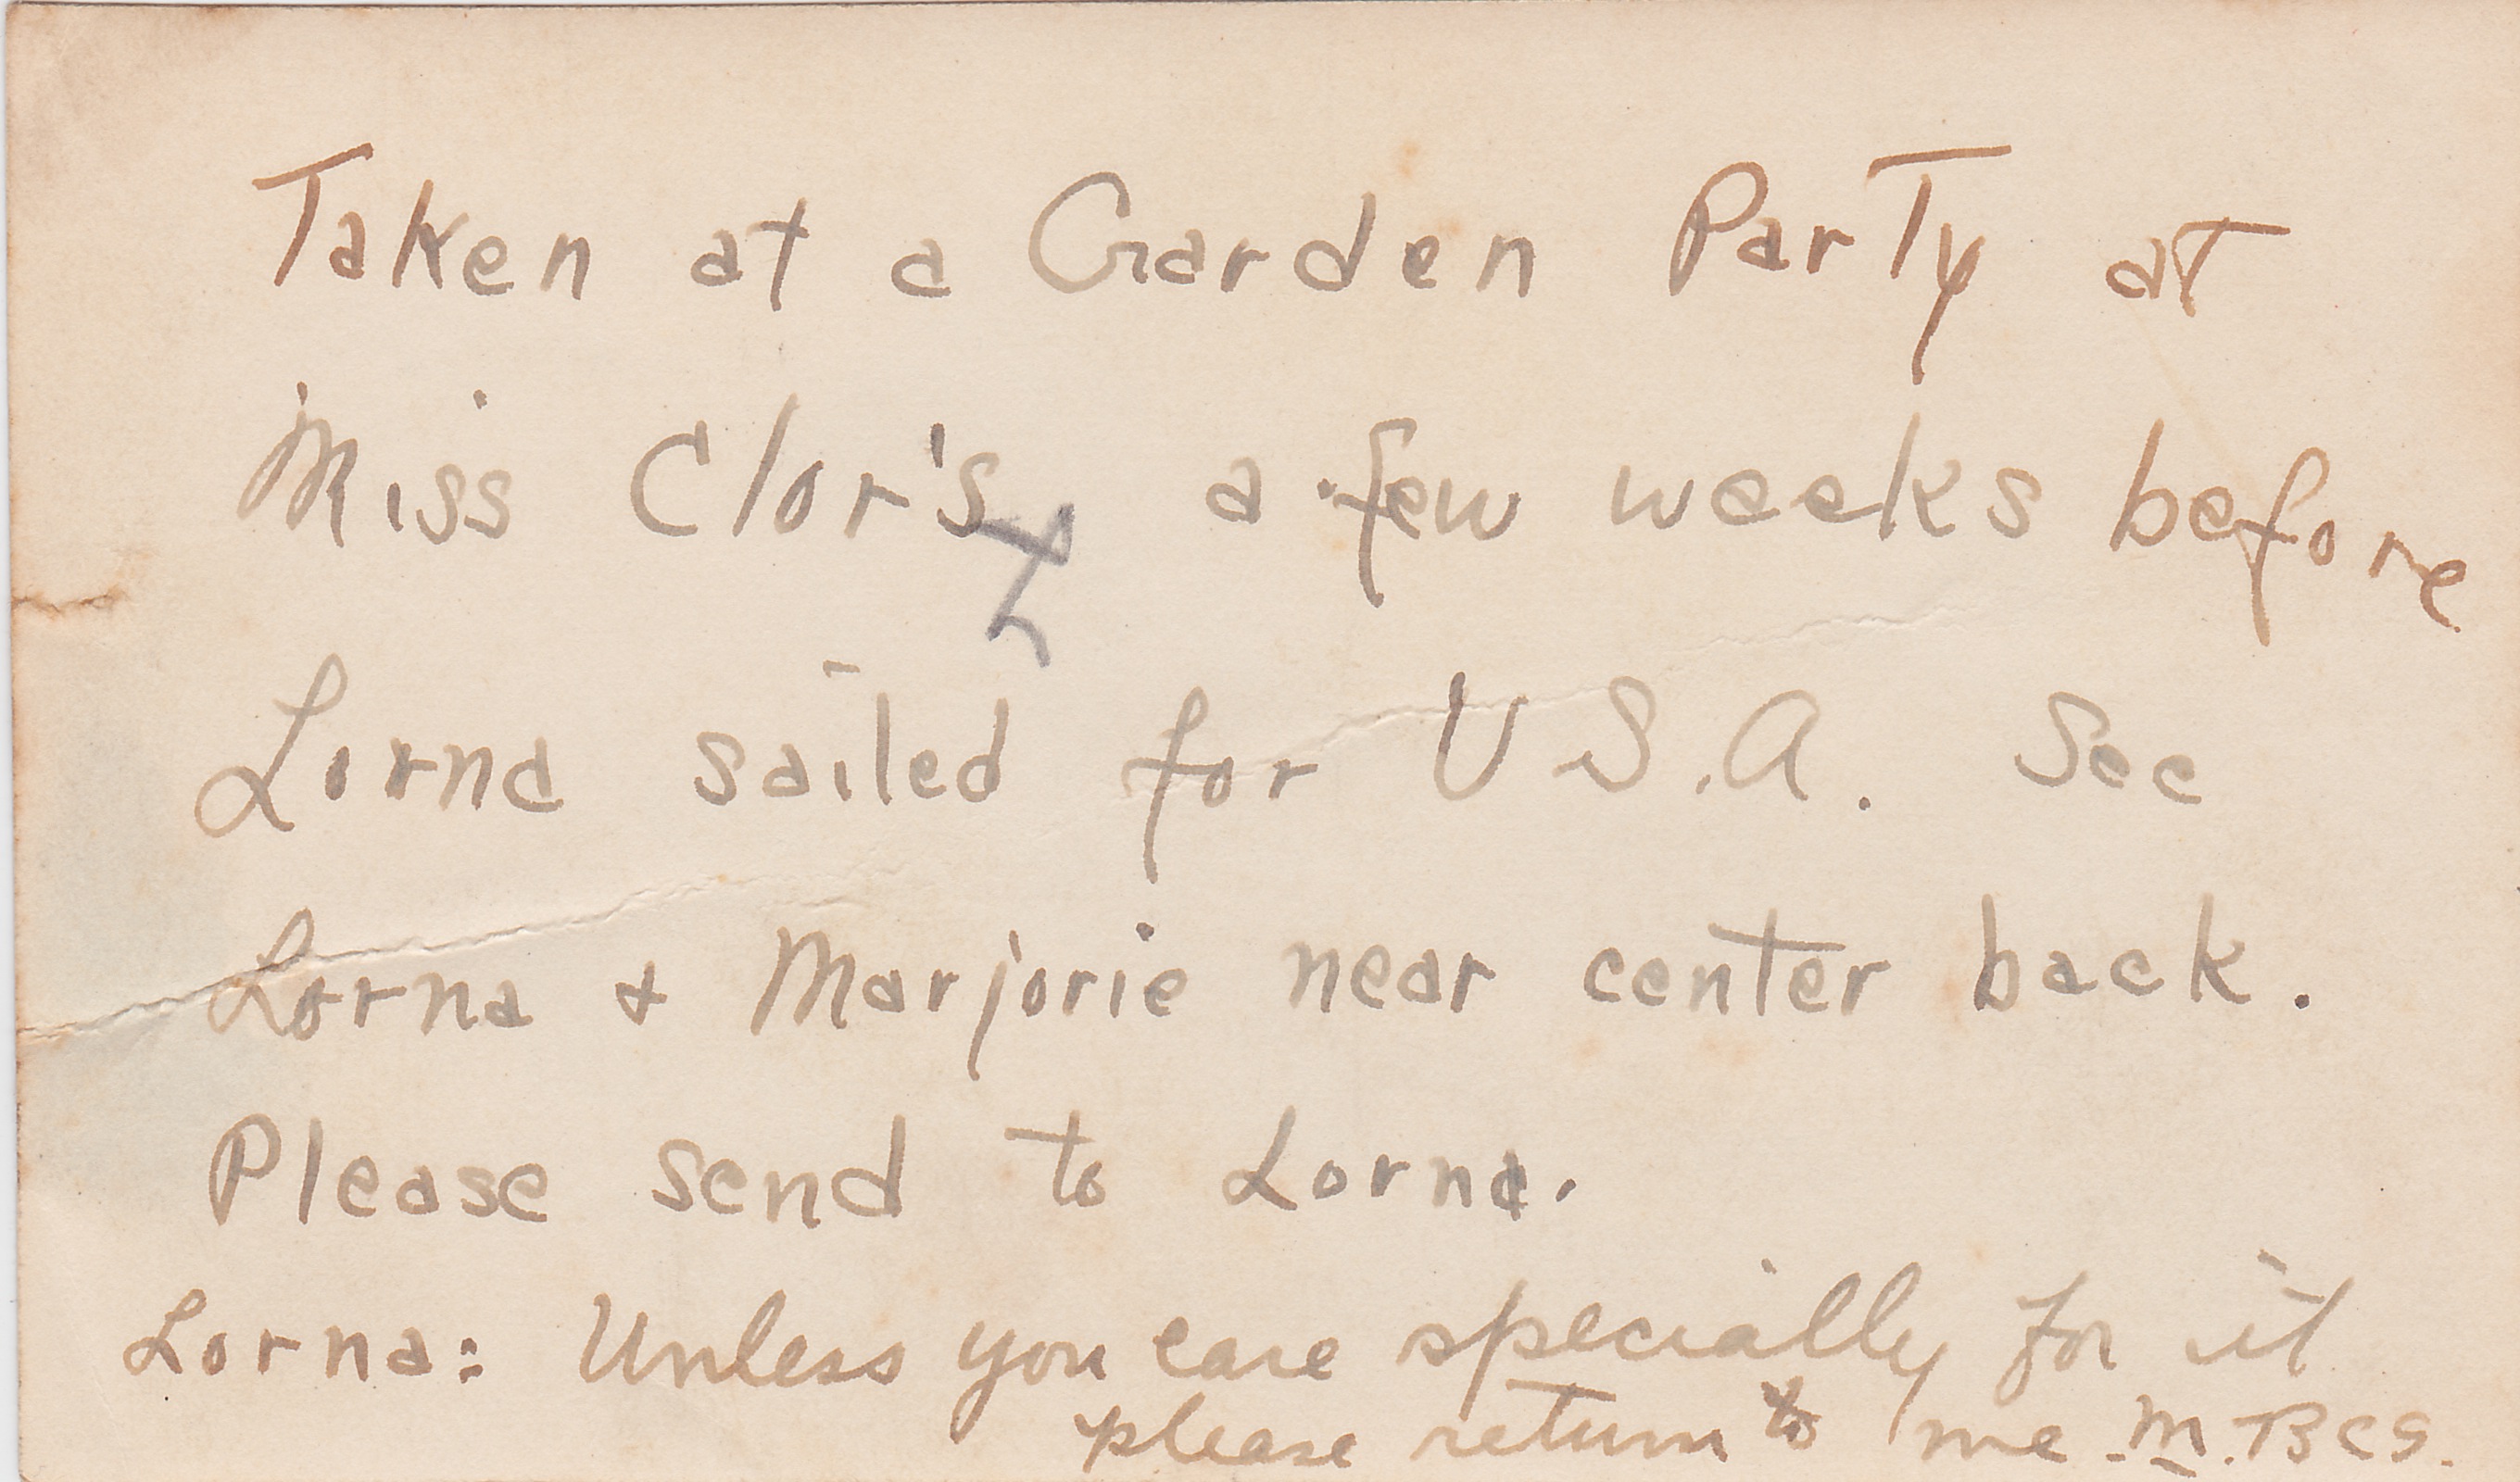 Taken at a Garden Party at
Miss Clor's a few weeks before
Lorna sailed for U S.A. See
Lorna + Marjorie near center back.
Please send to Lorna.
Lorna: Unless you care specially for it
please return to me. M.BCS.